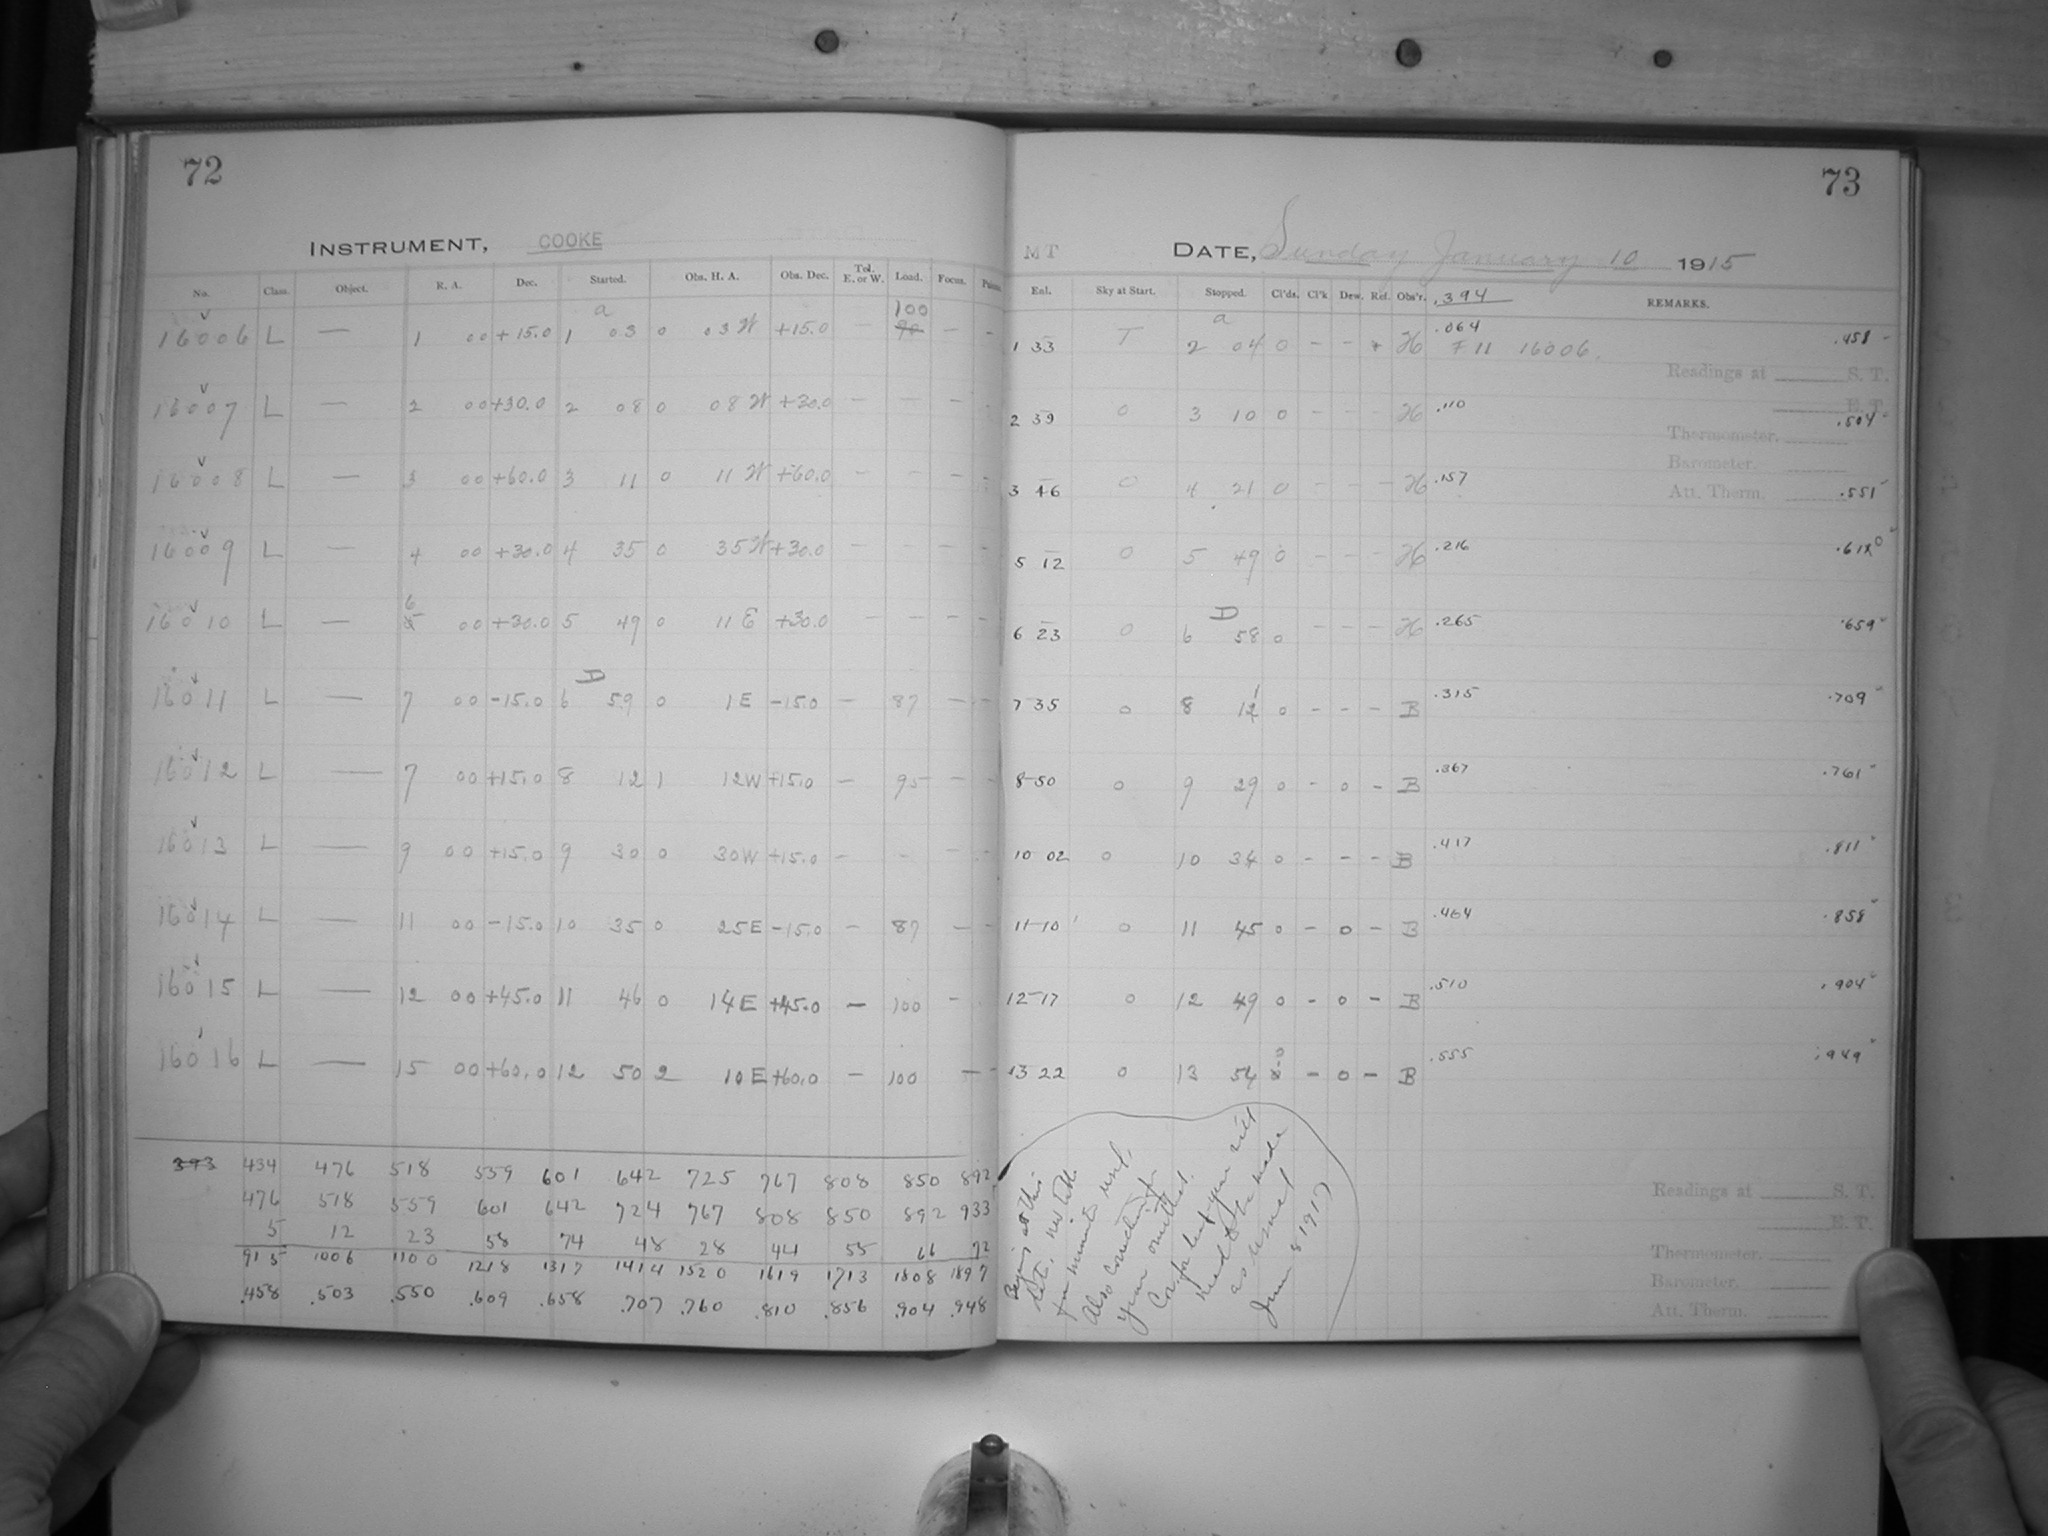 72
INSTRUMENT, COOKE
No. Class. Object. R. A. Dec. Started. Obs. H. A. Obs. Dec. Tel. E. or W. Load. Focus.
a 100
16006 L — 1 00 +15.0 1 03 0 03 W +15.0 — 90 — -
16007 L — 2 00 +30.0 2 08 0 08 W +30.0 — — — -
16008 L — 3 00 +60.0 3 11 0 11 W +60.0 — — — -
16009 L — 4 00 +30.0 4 35 0 35 W +30.0 — — — -
6
16010 L — 5 00 +30.0 5 49 0 11 E +30.0 — — — -
D
16011 L — 7 00 -15.0 6 59 0 1 E -15.0 — 87 — -
16012 L — 7 00 +15.0 8 12 1 12 W +15.0 — 95 — -
16013 L — 9 00 +15.0 9 30 0 30 W +15.0 — - — -
16014 L — 11 00 -15.0 10 35 0 25 E -15.0 — 87 — -
16015 L — 12 00 +45.0 11 46 0 14 E +45.0 — 100 -
16016 L — 15 00 +60.0 12 50 2 10 E +60.0 — 100 — -
393 434 476 518 559 601 642 725 767 808 850 892
476 518 559 601 642 724 767 808 850 892 933
5 12 23 58 74 48 28 44 55 66 72
915 1006 1100 1218 1317 1414 1520 1619 1713 1808 1897
.458 .503 .550 .609 .658 .707 .760 .810 .856 .904 .948
73
MT DATE, Sunday January 10 1915
Enl. Sky at Start. Stopped. Cl'ds. Cl'k Dew. Ref. Obs'r. .394 REMARKS.
a
1 33 T 2 04 0 - - H .064 F 11 16006. .458
Readings at S. T.
E. T.
2 39 0 3 10 0 - - - H .110 .504
Thermometer.
Barometer.
3 46 0 4 21 0 - - - H .157 .551
Att. Therm.
5 12 0 5 49 0 - - - H .216
D
6 23 0 6 58 0 - - - H .265 .659
7 35 0 8 12 0 - - - B .315 .709
8 50 0 9 29 0 - 0 - B .367 .761
10 02 0 10 34 0 - - - B .417 .811
11 10 0 11 45 0 - 0 - B .464 .858
12 17 0 12 49 0 - 0 - B .510 .904
13 22 0 13 54 - 0 - B .555 .949
Begin at this
date, new table
for minutes used.
Also correction for
year omitted.
as usual
June 8 1917
Readings at S. T.
E. T.
Thermometer.
Barometer.
Att. Therm.